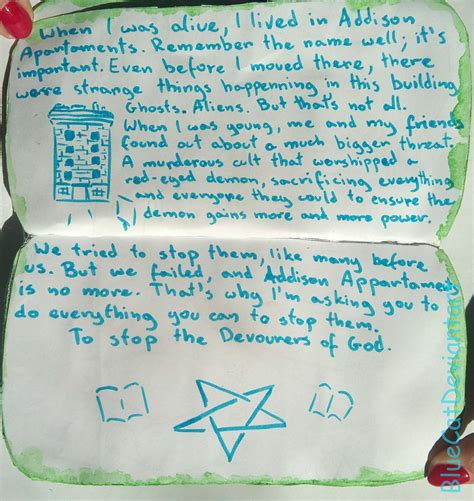 When I was alive, I lived in Addison
Apartaments. Remember the name well; it's
important. Even before I moved there, there
were strange things happenning in this building
Ghosts. Aliens. But that's not all.
When I was young, me and my friends
found out about a much bigger threat.
A murderous cult that worshipped a
red-eyed demon, sacrificing everything
and everyone they could to ensure the
demon gains more and more power.
We tried to stop them, like many before
us. But we failed, and Addison Appartaments
is no more. That's why I'm asking you to
do everything you can to stop them.
To stop the Devourers of God.
BlueCatDesignter